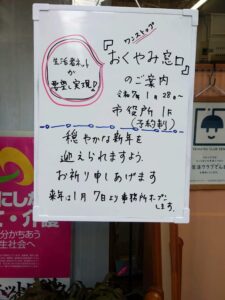 生活者ネットが
要望し実現!
ワンストップ
『おくやみ窓口』
のご案内
令和7年1月28日～
市役所1F
(予約制)
穏やかな新年を
迎えられますよう
お祈り申しあげます
来年は1月7日より事務所オープン
します。
にしな
介護
分かちあう
生社会へ